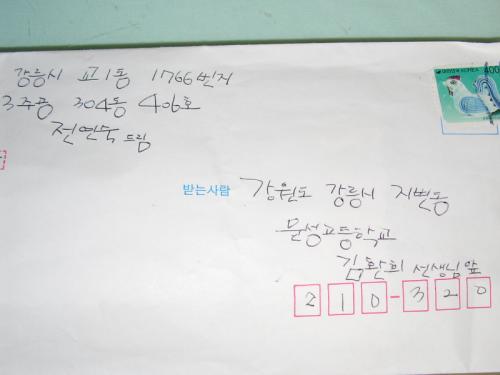 강릉시 교1동 1766번지
3주공 304동 406호
전연숙 드림
대한민국 KOREA 400
받는사람 강원도 강릉시 지변동
문성고등학교
김환희 선생님 앞
210-320